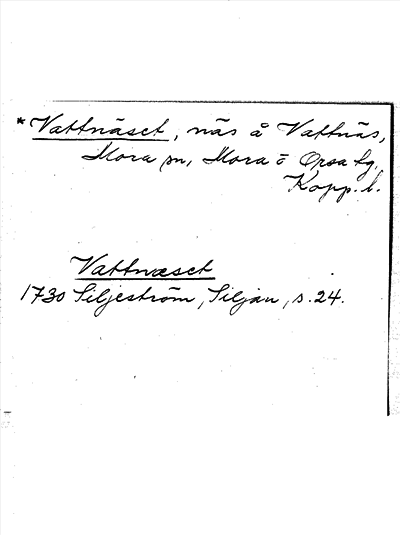 * Vattnäset, näs å Vattnäs,
Mora sn, Mora o Orsa tg,
Kopp. l.
Vattnæset
1730 Siljeström, Siljan, s. 24.